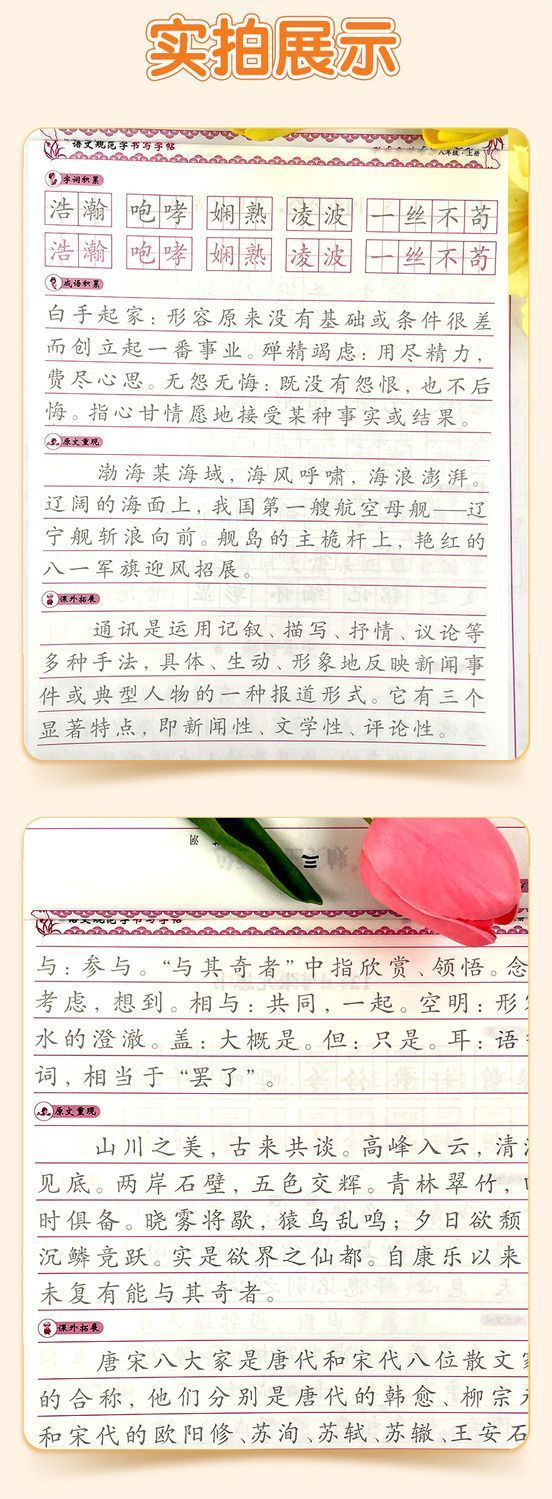 实拍展示
语文规范字书写字帖
八年级·上册
字词积累
浩瀚 咆哮 娴熟 凌波 一丝不苟
浩瀚 咆哮 娴熟 凌波 一丝不苟
成语积累
白手起家：形容原来没有基础或条件很差
而创立起一番事业。殚精竭虑：用尽精力，
费尽心思。无怨无悔：既没有怨恨，也不后
悔。指心甘情愿地接受某种事实或结果。
原文重现
渤海某海域，海风呼啸，海浪澎湃。
辽阔的海面上，我国第一艘航空母舰——辽
宁舰斩浪向前。舰岛的主桅杆上，艳红的
八一军旗迎风招展。
课外拓展
通讯是运用记叙、描写、抒情、议论等
多种手法，具体、生动、形象地反映新闻事
件或典型人物的一种报道形式。它有三个
显著特点，即新闻性、文学性、评论性。
三
语文规范字书写字帖
与：参与。“与其奇者”中指欣赏、领悟。念
考虑，想到。相与：共同，一起。空明：形
水的澄澈。盖：大概是。但：只是。耳：语
词，相当于“罢了”。
原文重现
山川之美，古来共谈。高峰入云，清
见底。两岸石壁，五色交辉。青林翠竹，
时俱备。晓雾将歇，猿鸟乱鸣；夕日欲颓
沉鳞竞跃。实是欲界之仙都。自康乐以来
未复有能与其奇者。
课外拓展
唐宋八大家是唐代和宋代八位散文
的合称，他们分别是唐代的韩愈、柳宗
和宋代的欧阳修、苏洵、苏轼、苏辙、王安石